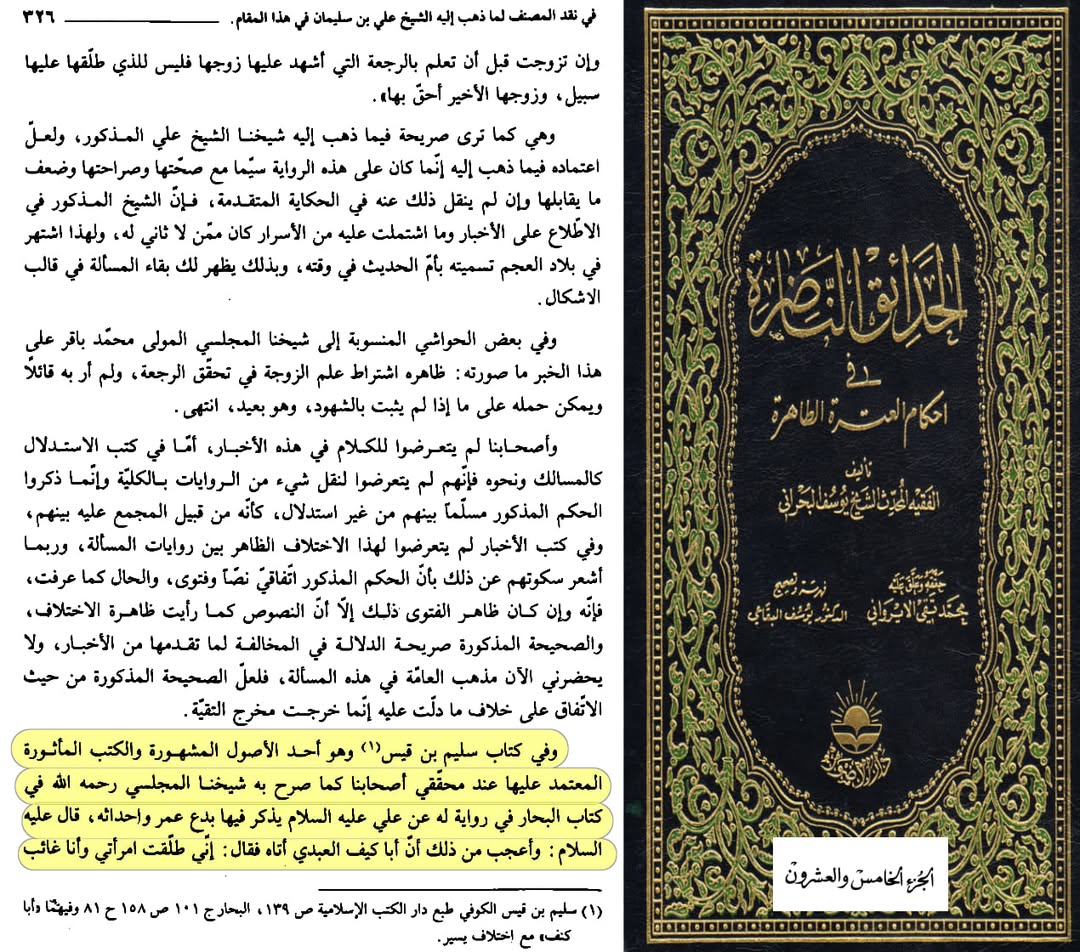 في نقد المصنف لما ذهب إليه الشيخ علي بن سليمان في هذا المقام. ٣٢٦
وإن تزوجت قبل أن تعلم بالرجعة التي أشهد عليها زوجها فليس للذي طلّقها عليها
سبيل، وزوجها الأخير أحقّ بها».
وهي كما ترى صريحة فيما ذهب إليه شيخنا الشيخ علي المذكور، ولعلّ
اعتماده فيما ذهب إليه إنّما كان على هذه الرواية سيّما مع صحّتها وصراحتها وضعف
ما يقابلها وإن لم ينقل ذلك عنه في الحكاية المتقدمة، فإنّ الشيخ المذكور في
الاطّلاع على الأخبار وما اشتملت عليه من الأسرار كان ممّن لا ثاني له، ولهذا اشتهر
في بلاد العجم تسميته بأمّ الحديث في وقته، وبذلك يظهر لك بقاء المسألة في قالب
الاشكال.
وفي بعض الحواشي المنسوبة إلى شيخنا المجلسي المولى محمّد باقر على
هذا الخبر ما صورته: ظاهره اشتراط علم الزوجة في تحقّق الرجعة، ولم أر به قائلاً
ويمكن حمله على ما إذا لم يثبت بالشهود، وهو بعيد، انتهى.
وأصحابنا لم يتعرضوا للكلام في هذه الأخبار، أمّا في كتب الاستدلال
كالمسالك ونحوه فإنّهم لم يتعرضوا لنقل شيء من الروايات بالكليّة وإنّما ذكروا
الحكم المذكور مسلّماً بينهم من غير استدلال، كأنّه من قبيل المجمع عليه بينهم،
وفي كتب الأخبار لم يتعرضوا لهذا الاختلاف الظاهر بين روايات المسألة، وربما
أشعر سكوتهم عن ذلك بأنّ الحكم المذكور اتّفاقيّ نصّاً وفتوى، والحال كما عرفت،
فإنّه وإن كان ظاهر الفتوى ذلك إلّا أنّ النصوص كما رأيت ظاهرة الاختلاف،
والصحيحة المذكورة صريحة الدلالة في المخالفة لما تقدمها من الأخبار، ولا
يحضرني الآن مذهب العامّة في هذه المسألة، فلعلّ الصحيحة المذكورة من حيث
الاتّفاق على خلاف ما دلّت عليه إنّما خرجت مخرج التقيّة.
وفي كتاب سليم بن قيس(١) وهو أحد الأصول المشهورة والكتب المأثورة
المعتمد عليها عند محقّقي أصحابنا كما صرح به شيخنا المجلسي رحمه الله في
كتاب البحار في رواية له عن علي عليه السلام يذكر فيها بدع عمر واحداثه، قال عليه
السلام: وأعجب من ذلك أنّ أبا كيف العبدي أتاه فقال: إنّي طلّقت امرأتي وأنا غائب
(١) سليم بن قيس الكوفي طبع دار الكتب الإسلامية ص ١٣٩، البحار ج ١٠١ ص ١٥٨ ح ٨١ وفيهما «أبا
كنف» مع اختلاف يسير.
الحدائق الناضرة
في
احكام العترة الطاهرة
تأليف
الفقيه المحدث الشيخ يوسف البحراني
حققه وعلق عليه
محمد تقي الايرواني
فهرسة وتصحيح
الدكتور يوسف البقاعي
الجزء الخامس والعشرون